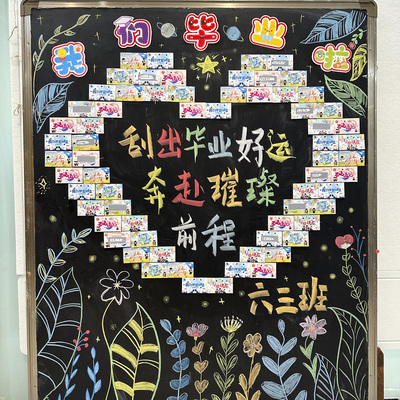 我们毕业啦
刮出毕业好运
奔赴璀璨
前程
六三班